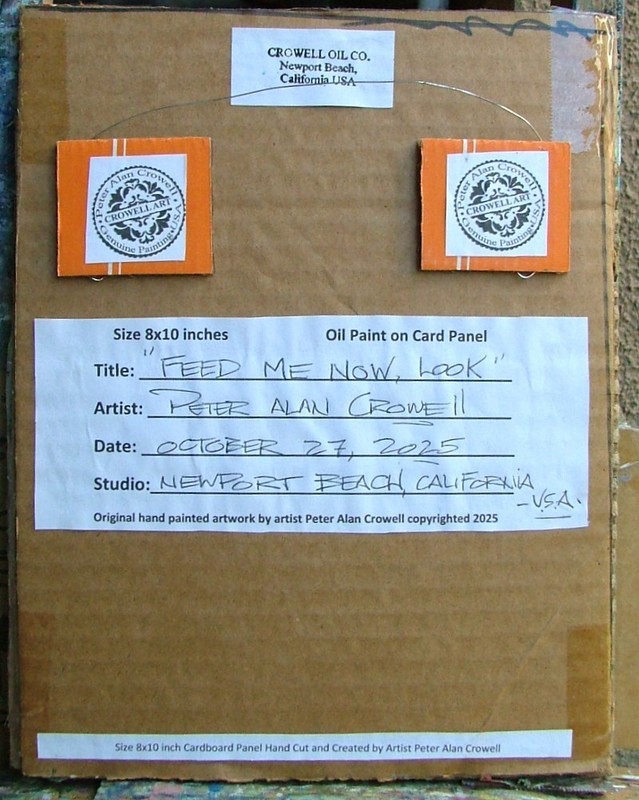 CROWELL OIL CO.
Newport Beach,
California USA
Peter Alan Crowell
CROWELL ART
Genuine Painting USA
Peter Alan Crowell
CROWELL ART
Genuine Painting USA
Size 8x10 inches Oil Paint on Card Panel
Title: "FEED ME NOW, LOOK"
Artist: PETER ALAN CROWEll
Date: OCTOBER 27, 2025
Studio: NEWPORT BEACH, CALIFORNIA
-U.S.A.
Original hand painted artwork by artist Peter Alan Crowell copyrighted 2025
Size 8x10 inch Cardboard Panel Hand Cut and Created by Artist Peter Alan Crowell